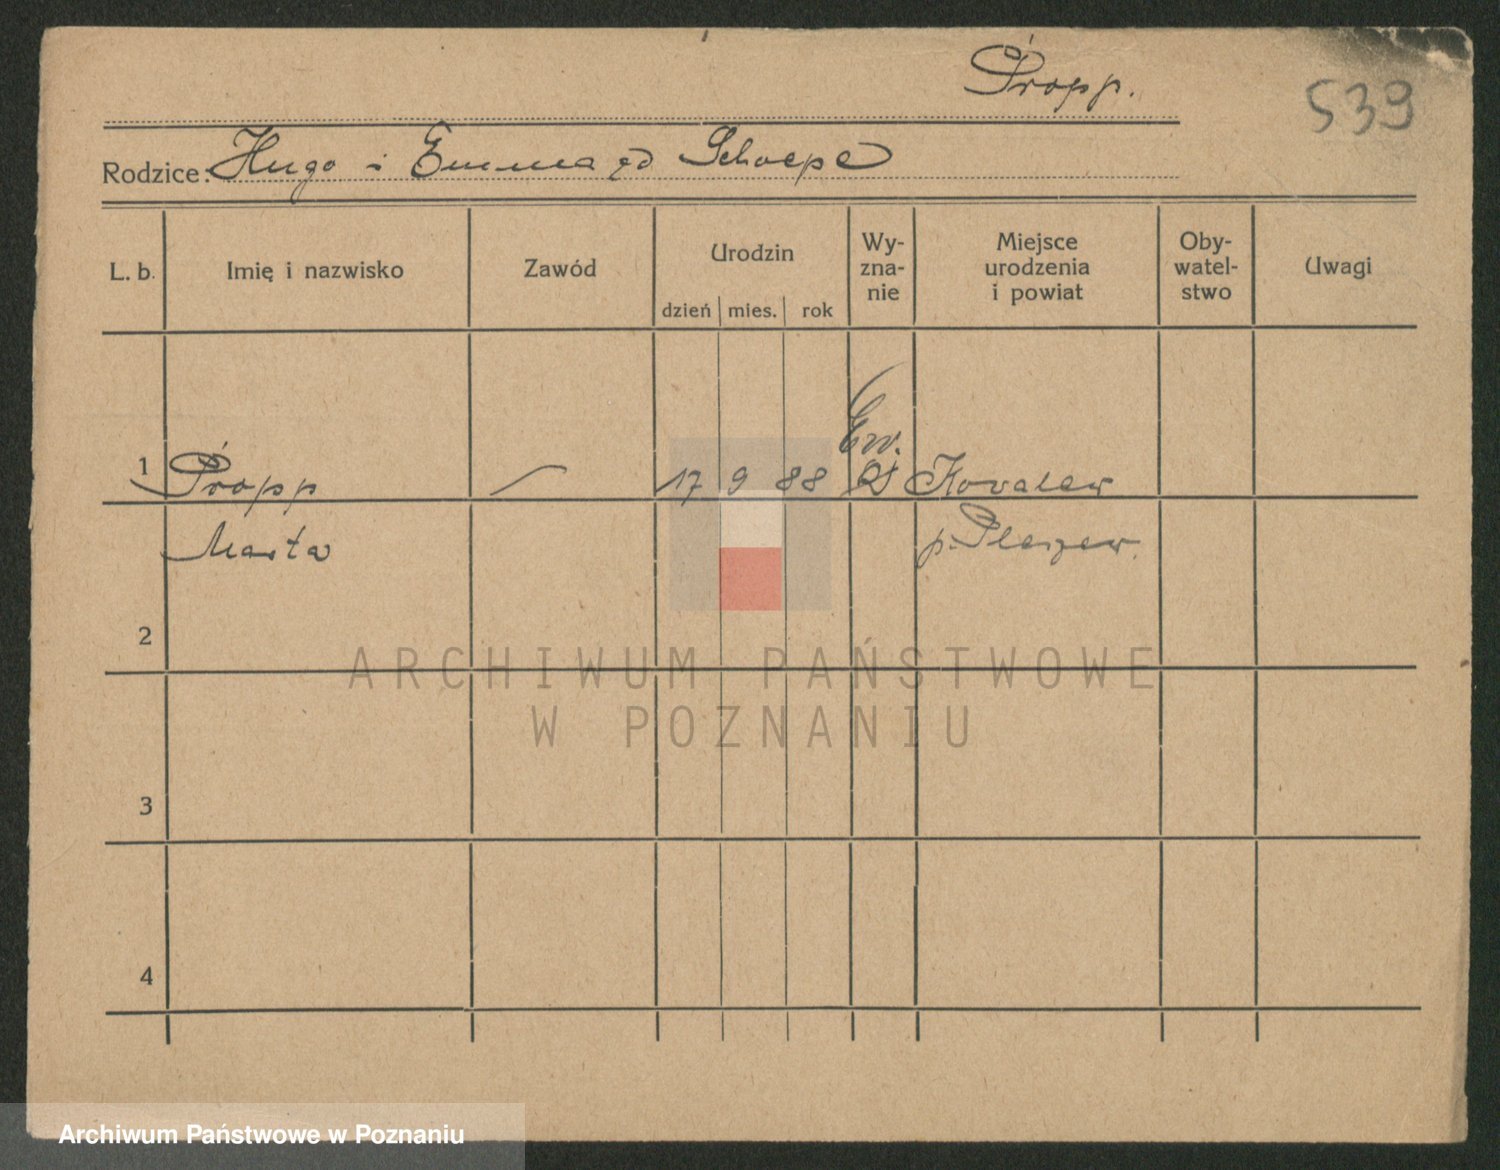 Propp.
539
Rodzice: Hugo i Emma zd Schoepe
L. b. Imię i nazwisko Zawód Urodzin dzień mies. rok Wy-zna-nie Miejsce urodzenia i powiat Oby-watel-stwo Uwagi
Ew.
1 Propp 17 9 88 Kovalew
Marta p. Pleszew.
2
ARCHIWUM PAŃSTWOWE
W POZNANIU
3
4
Archiwum Państwowe w Poznaniu